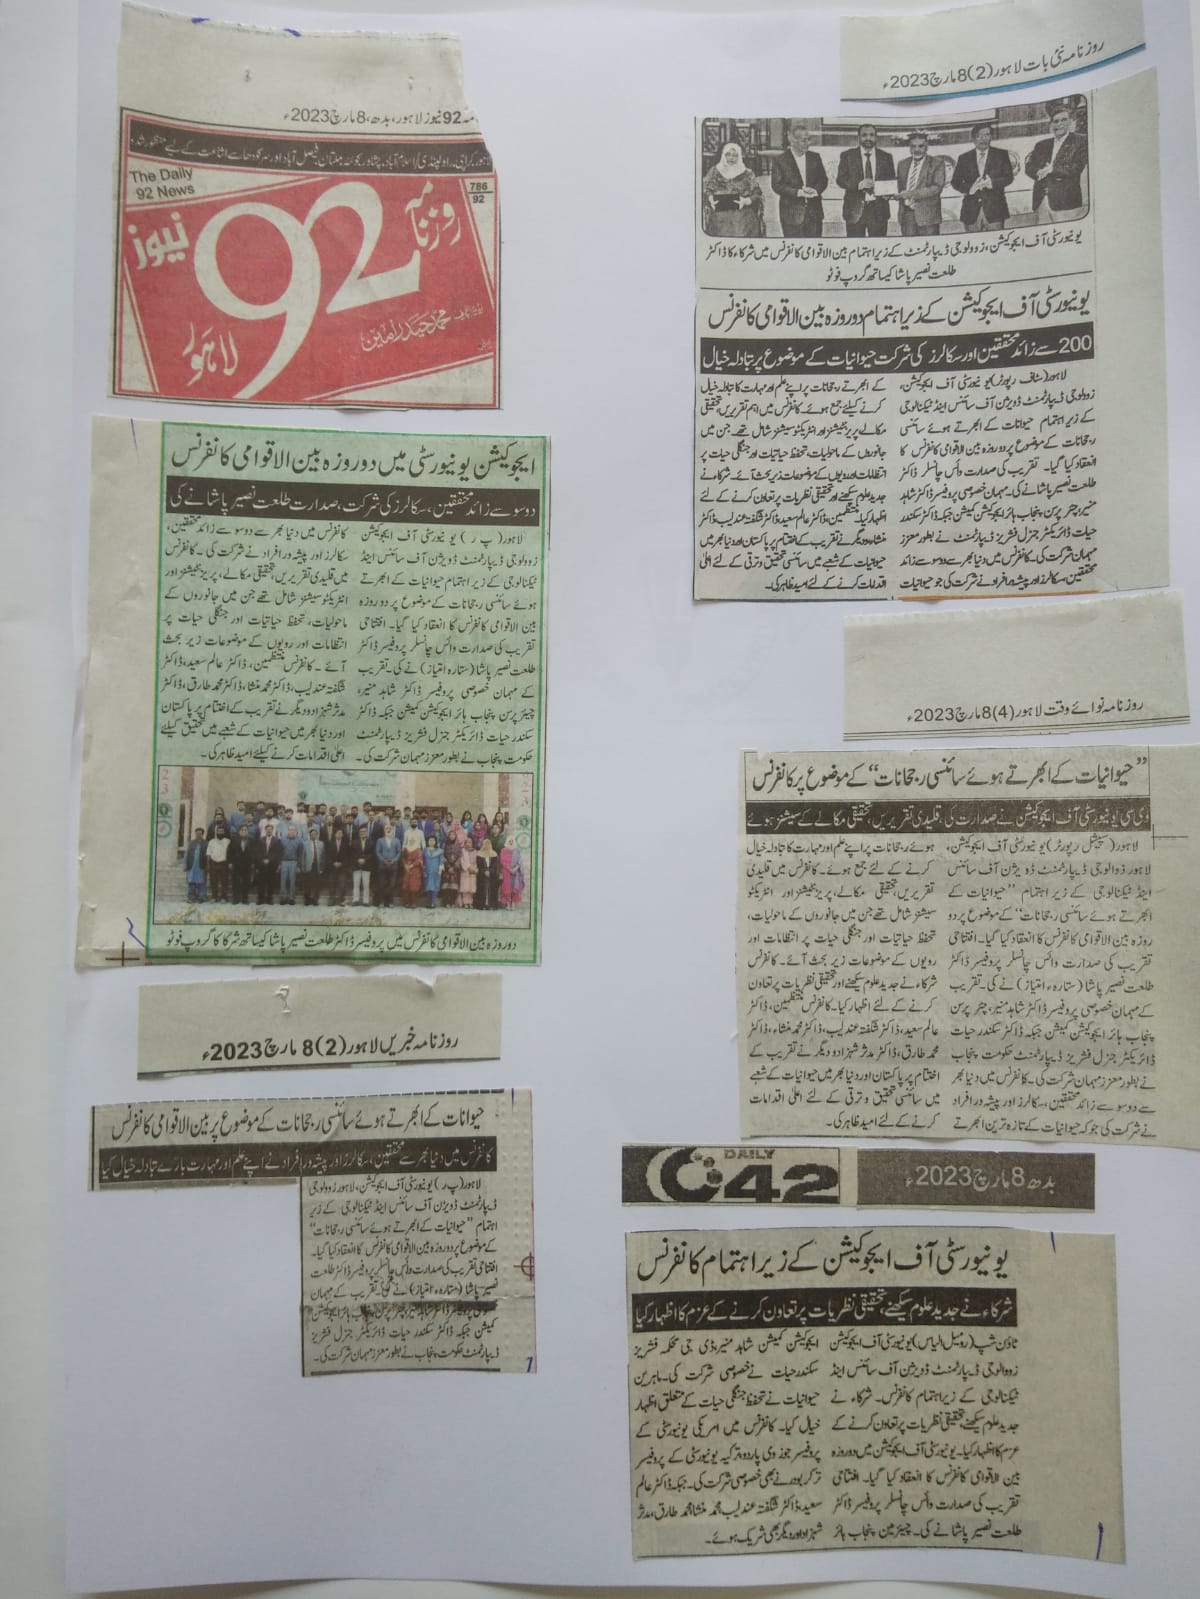 روزنامہ 92 نیوز لاہور، بدھ، 8 مارچ 2023ء
لاہور، کراچی، راولپنڈی/اسلام آباد، پشاور، کوئٹہ، ملتان، فیصل آباد اور سرگودھا سے اشاعت کے لیے منظور شدہ
The Daily
92 News
786
92
روزنامہ
92
نیوز
لاہور
ایجوکیشن یونیورسٹی میں دو روزہ بین الاقوامی کانفرنس
دو سو سے زائد محققین، سکالرز کی شرکت، صدارت طلعت نصیر پاشا نے کی
لاہور (پ ر) یونیورسٹی آف ایجوکیشن
زوولوجی ڈیپارٹمنٹ ڈویژن آف سائنس اینڈ
ٹیکنالوجی کے زیر اہتمام حیوانیات کے ابھرتے
ہوئے سائنسی رجحانات کے موضوع پر دو روزہ
بین الاقوامی کانفرنس کا انعقاد کیا گیا۔ افتتاحی
تقریب کی صدارت وائس چانسلر پروفیسر ڈاکٹر
طلعت نصیر پاشا (ستارہ امتیاز) نے کی۔ تقریب
کے مہمان خصوصی پروفیسر ڈاکٹر شاہد منیر،
چیئرپرسن پنجاب ہائر ایجوکیشن کمیشن جبکہ ڈاکٹر
سکندر حیات ڈائریکٹر جنرل فشریز ڈیپارٹمنٹ
حکومت پنجاب نے بطور معزز مہمان شرکت کی۔
کانفرنس میں دنیا بھر سے دو سو سے زائد محققین،
سکالرز اور پیشہ ور افراد نے شرکت کی۔ کانفرنس
میں قلیدی تقریریں، تحقیقی مکالے، پریزنٹیشنز اور
انٹریکٹو سیشنز شامل تھے جن میں جانوروں کے
ماحولیات، تحفظ حیاتیات اور جنگلی حیات پر
انتظامات اور رویوں کے موضوعات زیر بحث
آئے۔ کانفرنس منتظمین، ڈاکٹر عالم سعید، ڈاکٹر
شگفتہ عندلیب، ڈاکٹر محمد منشا، ڈاکٹر محمد طارق، ڈاکٹر
مدثر شہزاد و دیگر نے تقریب کے اختتام پر پاکستان
اور دنیا بھر میں حیوانیات کے شعبے میں تحقیق کیلئے
اعلیٰ اقدامات کرنے کیلئے امید ظاہر کی۔
دو روزہ بین الاقوامی کانفرنس میں پروفیسر ڈاکٹر طلعت نصیر پاشا کیساتھ شرکا کا گروپ فوٹو
روزنامہ خبریں لاہور (2) 8 مارچ 2023ء
حیوانات کے ابھرتے ہوئے سائنسی رجحانات کے موضوع پر بین الاقوامی کانفرنس
کانفرنس میں دنیا بھر سے محققین، سکالرز اور پیشہ ور افراد نے اپنے علم اور مہارت بارے تبادلہ خیال کیا
لاہور (پ ر) یونیورسٹی آف ایجوکیشن، لاہور زوولوجی
ڈیپارٹمنٹ ڈویژن آف سائنس اینڈ ٹیکنالوجی کے زیر
اہتمام "حیوانیات کے ابھرتے ہوئے سائنسی رجحانات"
کے موضوع پر دو روزہ بین الاقوامی کانفرنس کا انعقاد کیا گیا۔
افتتاحی تقریب کی صدارت وائس چانسلر پروفیسر ڈاکٹر طلعت
نصیر پاشا (ستارہ امتیاز) نے کی۔ تقریب کے مہمان
خصوصی پروفیسر ڈاکٹر شاہد منیر، چیئر پرسن پنجاب ہائر ایجوکیشن
کمیشن جبکہ ڈاکٹر سکندر حیات ڈائریکٹر جنرل فشریز
ڈیپارٹمنٹ حکومت پنجاب نے بطور معزز مہمان شرکت کی۔
روزنامہ نئی بات لاہور (2) 8 مارچ 2023ء
یونیورسٹی آف ایجوکیشن، زوولوجی ڈیپارٹمنٹ کے زیر اہتمام بین الاقوامی کانفرنس میں شرکاء کا ڈاکٹر
طلعت نصیر پاشا کیساتھ گروپ فوٹو
یونیورسٹی آف ایجوکیشن کے زیر اہتمام دو روزہ بین الاقوامی کانفرنس
200 سے زائد محققین اور سکالرز کی شرکت حیوانیات کے موضوع پر تبادلہ خیال
لاہور (سٹاف رپورٹر) یونیورسٹی آف ایجوکیشن،
زوولوجی ڈیپارٹمنٹ ڈویژن آف سائنس اینڈ ٹیکنالوجی
کے زیر اہتمام حیوانات کے ابھرتے ہوئے سائنسی
رجحانات کے موضوع پر دو روزہ بین الاقوامی کانفرنس کا
انعقاد کیا گیا۔ تقریب کی صدارت وائس چانسلر ڈاکٹر
طلعت نصیر پاشا نے کی۔ مہمان خصوصی پروفیسر ڈاکٹر شاہد
منیر، چیئر پرسن پنجاب ہائر ایجوکیشن کمیشن جبکہ ڈاکٹر سکندر
حیات ڈائریکٹر جنرل فشریز ڈیپارٹمنٹ نے بطور معزز
مہمان شرکت کی۔ کانفرنس میں دنیا بھر سے دو سو سے زائد
محققین، سکالرز اور پیشہ ور افراد نے شرکت کی جو حیوانیات
کے ابھرتے رجحانات پر اپنے علم اور مہارت کا تبادلہ خیال
کرنے کیلئے جمع ہوئے۔ کانفرنس میں اہم تقریریں، تحقیقی
مکالے، پریزنٹیشنز اور انٹریکٹو سیشنز شامل تھے۔ جن میں
جانوروں کے ماحولیات، تحفظ حیاتیات اور جنگلی حیات پر
انتظامات اور رویوں کے موضوعات زیر بحث آئے۔ شرکاء نے
جدید علوم سیکھنے اور تحقیقی نظریات پر تعاون کرنے کے لئے
اظہار کیا۔ منتظمین، ڈاکٹر عالم سعید، ڈاکٹر شگفتہ عندلیب، ڈاکٹر
منشاء و دیگر نے تقریب کے اختتام پر پاکستان اور دنیا بھر میں
حیوانیات کے شعبے میں سائنسی تحقیق و ترقی کے لئے اعلیٰ
اقدامات کرنے کے لئے امید ظاہر کی۔
روزنامہ نوائے وقت لاہور (4) 8 مارچ 2023ء
"حیوانیات کے ابھرتے ہوئے سائنسی رجحانات" کے موضوع پر کانفرنس
وی سی یونیورسٹی آف ایجوکیشن نے صدارت کی، قلیدی تقریریں، تحقیقی مکالے کے سیشنز ہوئے
لاہور (سپیشل رپورٹر) یونیورسٹی آف ایجوکیشن،
لاہور زوالوجی ڈیپارٹمنٹ ڈویژن آف سائنس
اینڈ ٹیکنالوجی کے زیر اہتمام "حیوانیات کے
ابھرتے ہوئے سائنسی رجحانات" کے موضوع پر دو
روزہ بین الاقوامی کانفرنس کا انعقاد کیا گیا۔ افتتاحی
تقریب کی صدارت وائس چانسلر پروفیسر ڈاکٹر
طلعت نصیر پاشا (ستارہ امتیاز) نے کی۔ تقریب
کے مہمان خصوصی پروفیسر ڈاکٹر شاہد منیر، چیئر پرسن
پنجاب ہائر ایجوکیشن کمیشن جبکہ ڈاکٹر سکندر حیات
ڈائریکٹر جنرل فشریز ڈیپارٹمنٹ حکومت پنجاب
نے بطور معزز مہمان شرکت کی۔ کانفرنس میں دنیا بھر
سے دو سو سے زائد محققین، سکالرز اور پیشہ ور افراد
نے شرکت کی جو کہ حیوانیات کے تازہ ترین ابھرتے
ہوئے رجحانات پر اپنے علم اور مہارت کا تبادلہ خیال
کرنے کے لئے جمع ہوئے۔ کانفرنس میں قلیدی
تقریریں، تحقیقی مکالے، پریزنٹیشنز اور انٹریکٹو
سیشنز شامل تھے جن میں جانوروں کے ماحولیات،
تحفظ حیاتیات اور جنگلی حیات پر انتظامات اور
رویوں کے موضوعات زیر بحث آئے۔ کانفرنس
شرکاء نے جدید علوم سیکھنے اور تحقیقی نظریات پر تعاون
کرنے کے لئے اظہار کیا۔ کانفرنس منتظمین، ڈاکٹر
عالم سعید، ڈاکٹر شگفتہ عندلیب، ڈاکٹر محمد منشاء، ڈاکٹر
محمد طارق، ڈاکٹر مدثر شہزاد و دیگر نے تقریب کے
اختتام پر پاکستان اور دنیا بھر میں حیوانیات کے شعبے
میں سائنسی تحقیق و ترقی کے لئے اعلیٰ اقدامات
کرنے کے لئے امید ظاہر کی۔
DAILY
42
بدھ 8 مارچ 2023ء
یونیورسٹی آف ایجوکیشن کے زیر اہتمام کانفرنس
شرکاء نے جدید علوم سیکھنے، تحقیقی نظریات پر تعاون کرنے کے عزم کا اظہار کیا
ٹاؤن شپ (رومیل الیاس) یونیورسٹی آف ایجوکیشن
زوولوجی ڈیپارٹمنٹ ڈویژن آف سائنس اینڈ
ٹیکنالوجی کے زیر اہتمام کانفرنس۔ شرکاء نے
جدید علوم سیکھنے، تحقیقی نظریات پر تعاون کرنے کے
عزم کا اظہار کیا۔ یونیورسٹی آف ایجوکیشن میں دو روزہ
بین الاقوامی کانفرنس کا انعقاد کیا گیا۔ افتتاحی
تقریب کی صدارت وائس چانسلر پروفیسر ڈاکٹر
طلعت نصیر پاشا نے کی۔ چیئرمین پنجاب ہائر
ایجوکیشن کمیشن شاہد منیر، ڈی جی محکمہ فشریز
سکندر حیات نے خصوصی شرکت کی۔ ماہرین
حیوانیات نے تحفظ جنگلی حیات کے متعلق اظہار
خیال کیا۔ کانفرنس میں امریکی یونیورسٹی کے
پروفیسر جوزوی پاردو ترکیہ یونیورسٹی کے پروفیسر
نے بھی خصوصی شرکت کی۔ جبکہ ڈاکٹر عالم
سعید، ڈاکٹر شگفتہ عندلیب، محمد منشا، محمد طارق، مدثر
شہزاد اور دیگر بھی شریک ہوئے۔